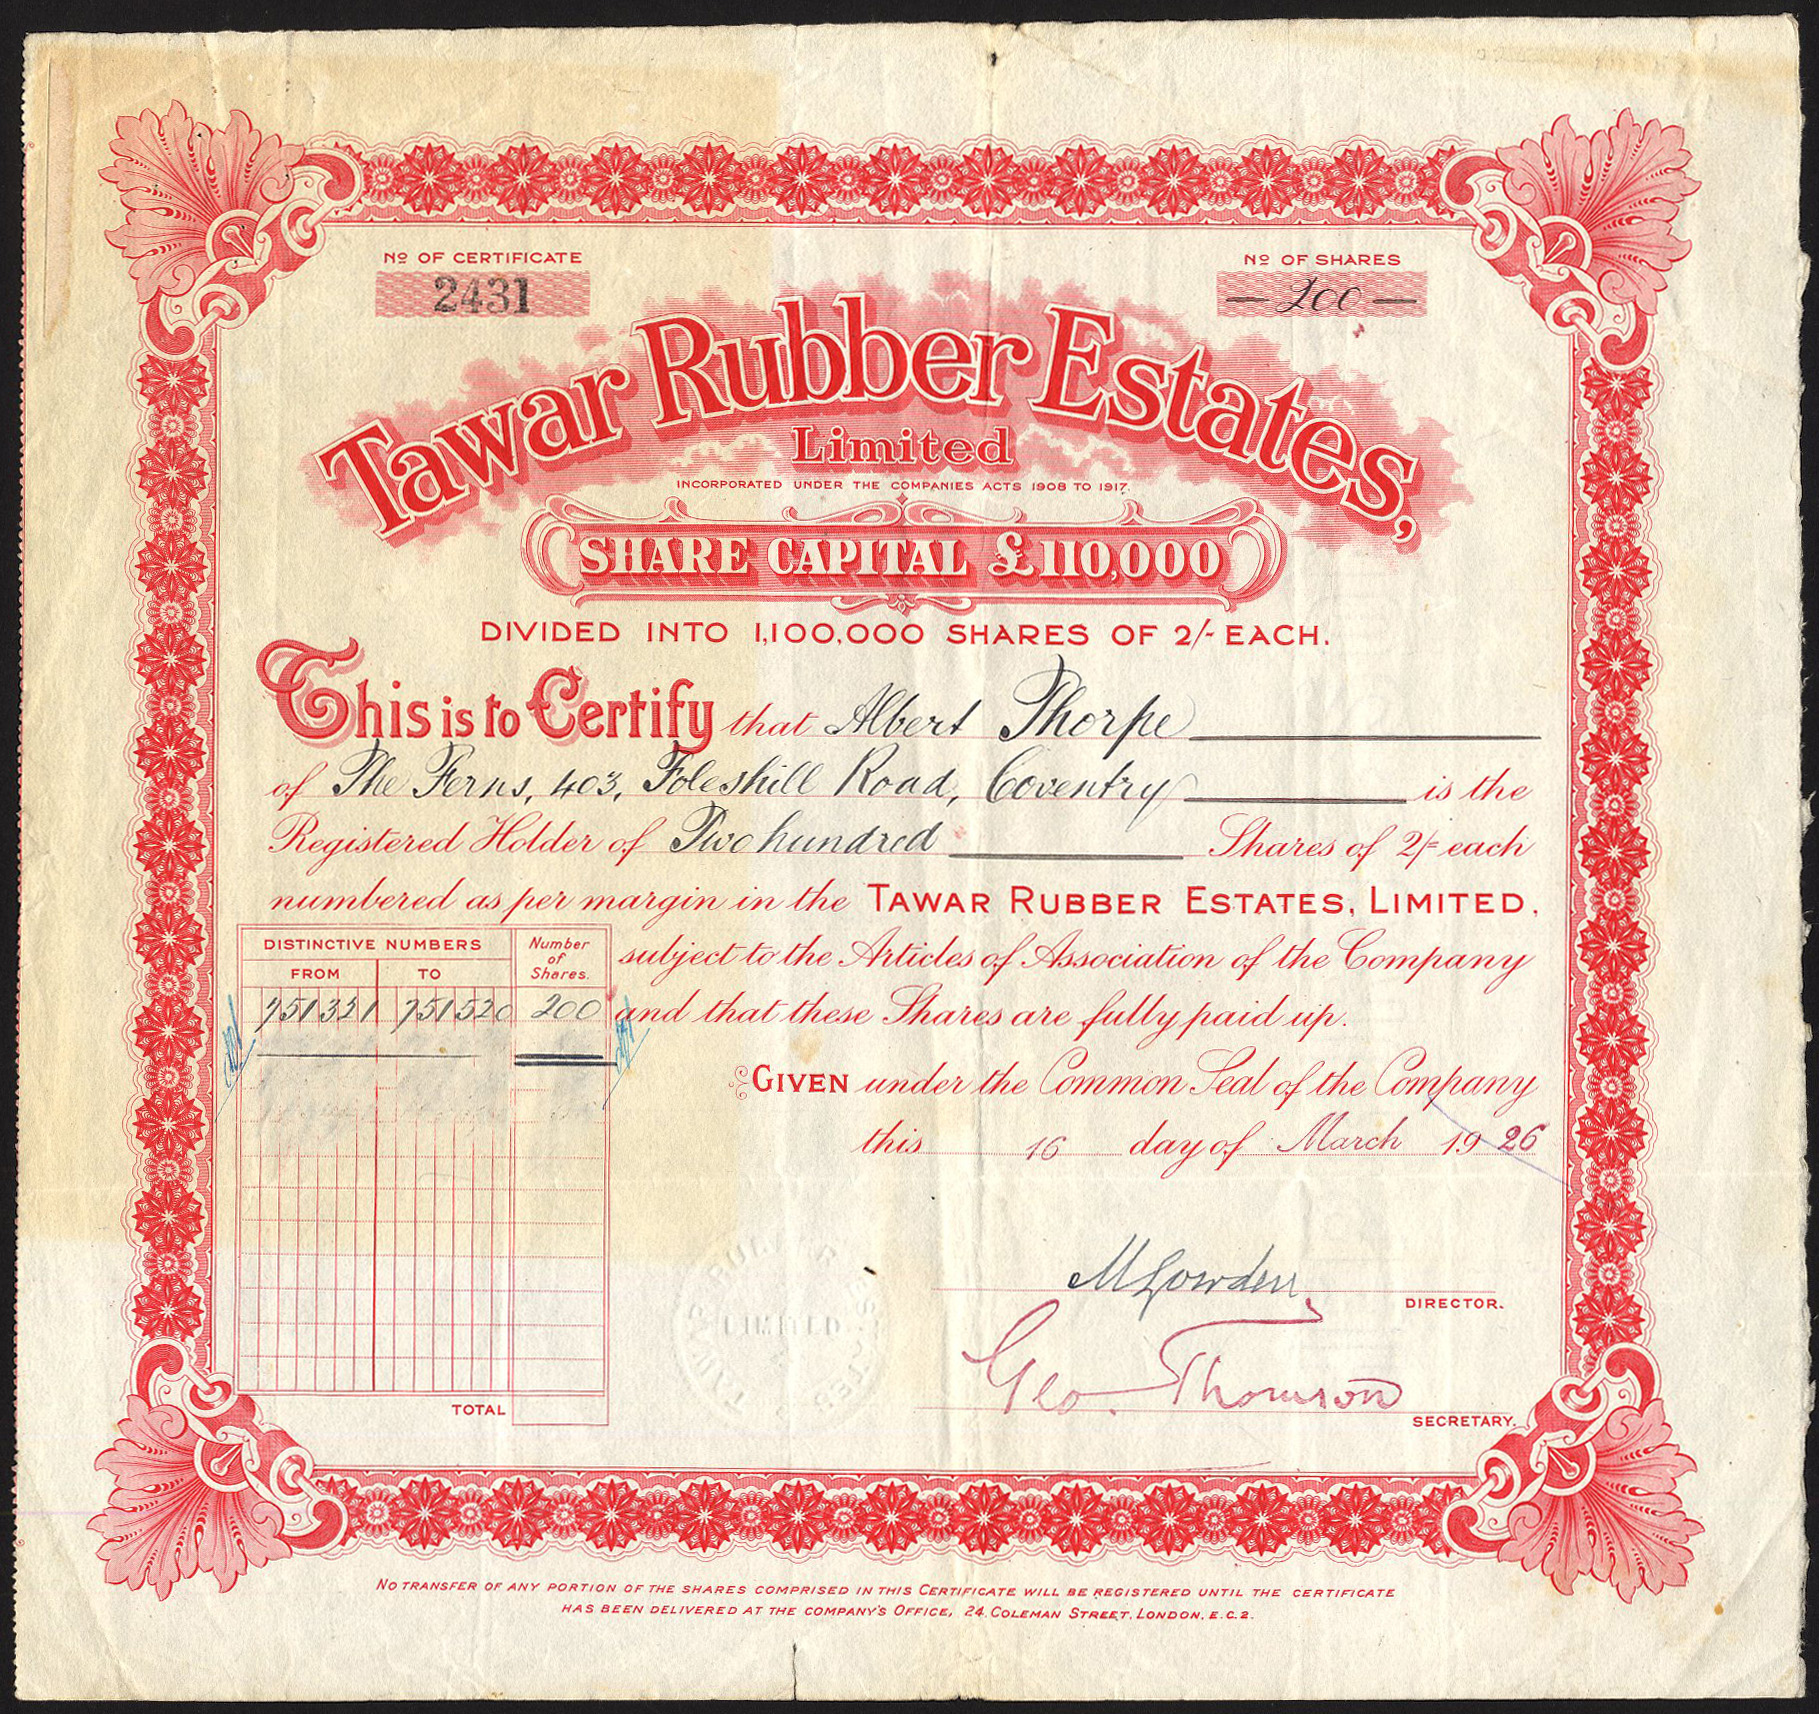 Nº OF CERTIFICATE
2431
Nº OF SHARES
— 200 —
Tawar Rubber Estates,
Limited
INCORPORATED UNDER THE COMPANIES ACTS 1908 TO 1917.
SHARE CAPITAL £110,000
DIVIDED INTO 1,100,000 SHARES OF 2/- EACH.
This is to Certify that Albert Thorpe
of The Ferns, 403, Foleshill Road, Coventry is the
Registered Holder of Two hundred Shares of 2/- each
numbered as per margin in the TAWAR RUBBER ESTATES, LIMITED,
subject to the Articles of Association of the Company
and that these Shares are fully paid up.
GIVEN under the Common Seal of the Company
this 16 day of March 1926
DISTINCTIVE NUMBERS
Number of Shares.
FROM TO
751321 751520 200
TOTAL
TAWAR RUBBER ESTATES
LIMITED
M Lowden
DIRECTOR.
Geo. Thomson
SECRETARY.
NO TRANSFER OF ANY PORTION OF THE SHARES COMPRISED IN THIS CERTIFICATE WILL BE REGISTERED UNTIL THE CERTIFICATE
HAS BEEN DELIVERED AT THE COMPANY'S OFFICE, 24, COLEMAN STREET, LONDON, E.C.2.